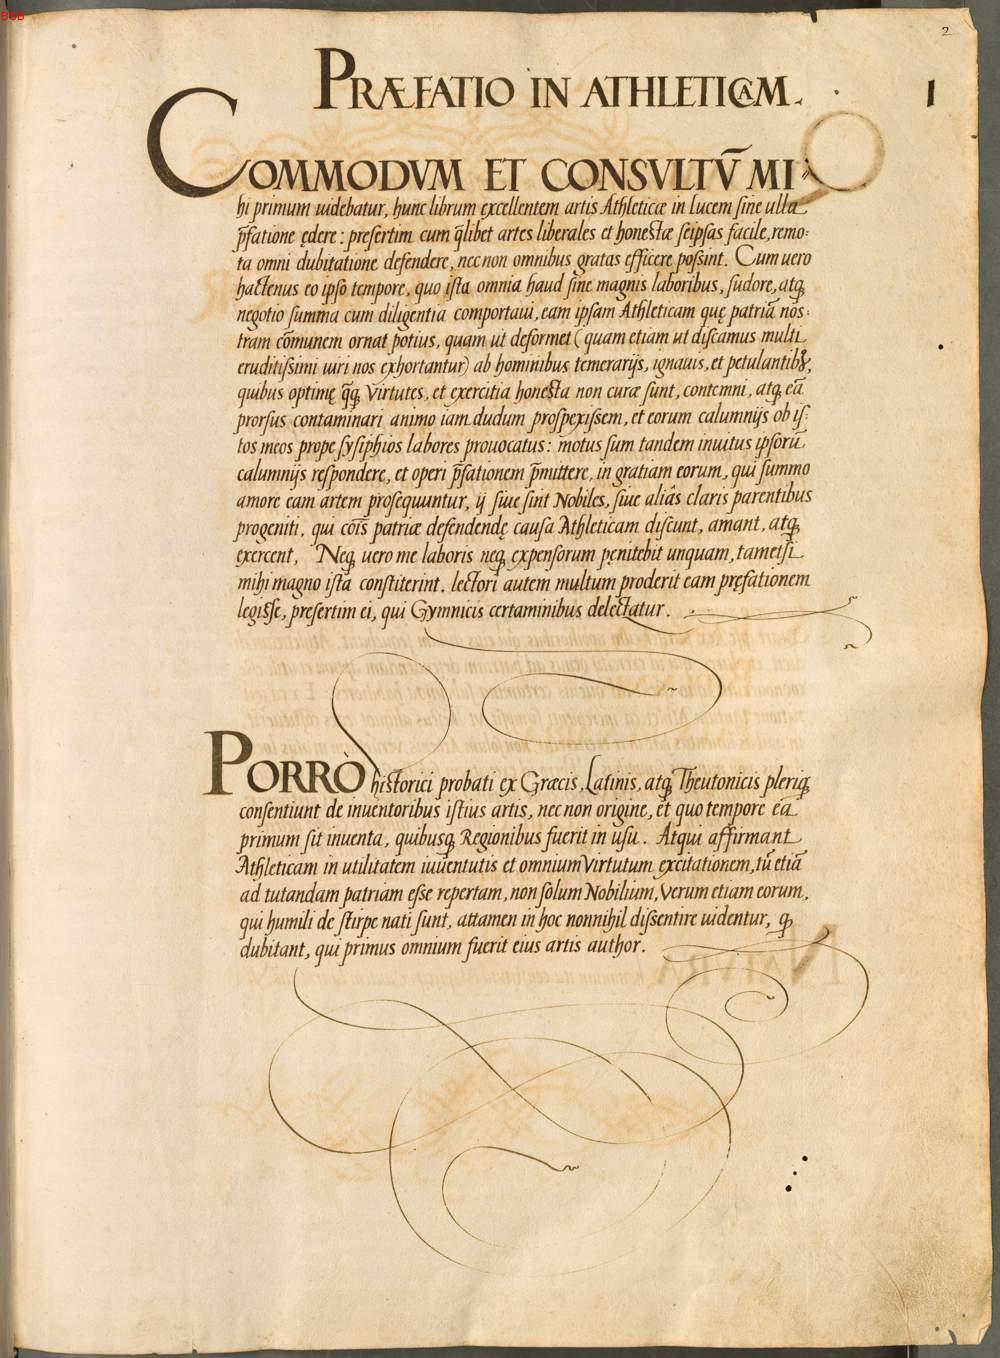 BSB
2
1
PRÆFATIO IN ATHLETICAM.
COMMODVM ET CONSVLTṼ MI⸗
hi primum uidebatur, hunc librum excellentem artis Athleticæ in lucem ſine ulla
p̃fatione ędere: preſertim cum q̃libet artes liberales et honeſtæ ſeipſas facile, remo:
ta omni dubitatione defendere, nec non omnibus gratas efficere poſſint. Cum uero
hactenus eo ipſo tempore, quo iſta omnia haud ſine magnis laboribus, ſudore, atq́;
negotio ſumma cum diligentia comportaui, eam ipſam Athleticam quę patriã noſ:
tram cõmunem ornat potius, quam ut deformet (quam etiam ut diſcamus multi
eruditiſſimi uiri nos exhortantur) ab hominibus temerarijs, ignauis, et petulantibꝰ,
quibus optimę q̃q; Virtutes, et exercitia honeſta non curæ ſunt, contemni, atq; eã
prorſus contaminari animo iam dudum proſpexiſſem, et eorum calumnijs ob iſ:
tos meos prope ſyſiphios labores prouocatus: motus ſum tandem inuitus ipſorũ
calumnijs reſpondere, et operi p̃fationem p̃mittere, in gratiam eorum, qui ſummo
amore eam artem proſequuntur, ij ſiue ſint Nobiles, ſiue aliâs claris parentibus
progeniti, qui cõis patriæ defendendę cauſa Athleticam diſcunt, amant, atq;
exercent, Neq; uero me laboris neq; expenſorum pęnitebit unquam, tametſi
mihi magno iſta conſtiterint. lectori autem multum proderit eam pręfationem
legiſſe, preſertim ei, qui Gymnicis certaminibus delectatur.
PORRÒ hiſtorici probati ex Græcis, Latinis, atq; Theutonicis pleriq;
conſentiunt de inuentoribus iſtius artis, nec non origine, et quo tempore ea
primum ſit inuenta, quibusq; Regionibus fuerit in uſu. Atqui affirmant
Athleticam in utilitatem iuuentutis et omnium Virtutum excitationem, tũ etiã
ad tutandam patriam eſſe repertam, non ſolum Nobilium, verum etiam eorum,
qui humili de ſtirpe nati ſunt, attamen in hoc nonnihil diſſentire uidentur, q̃
dubitant, qui primus omnium fuerit eius artis author.